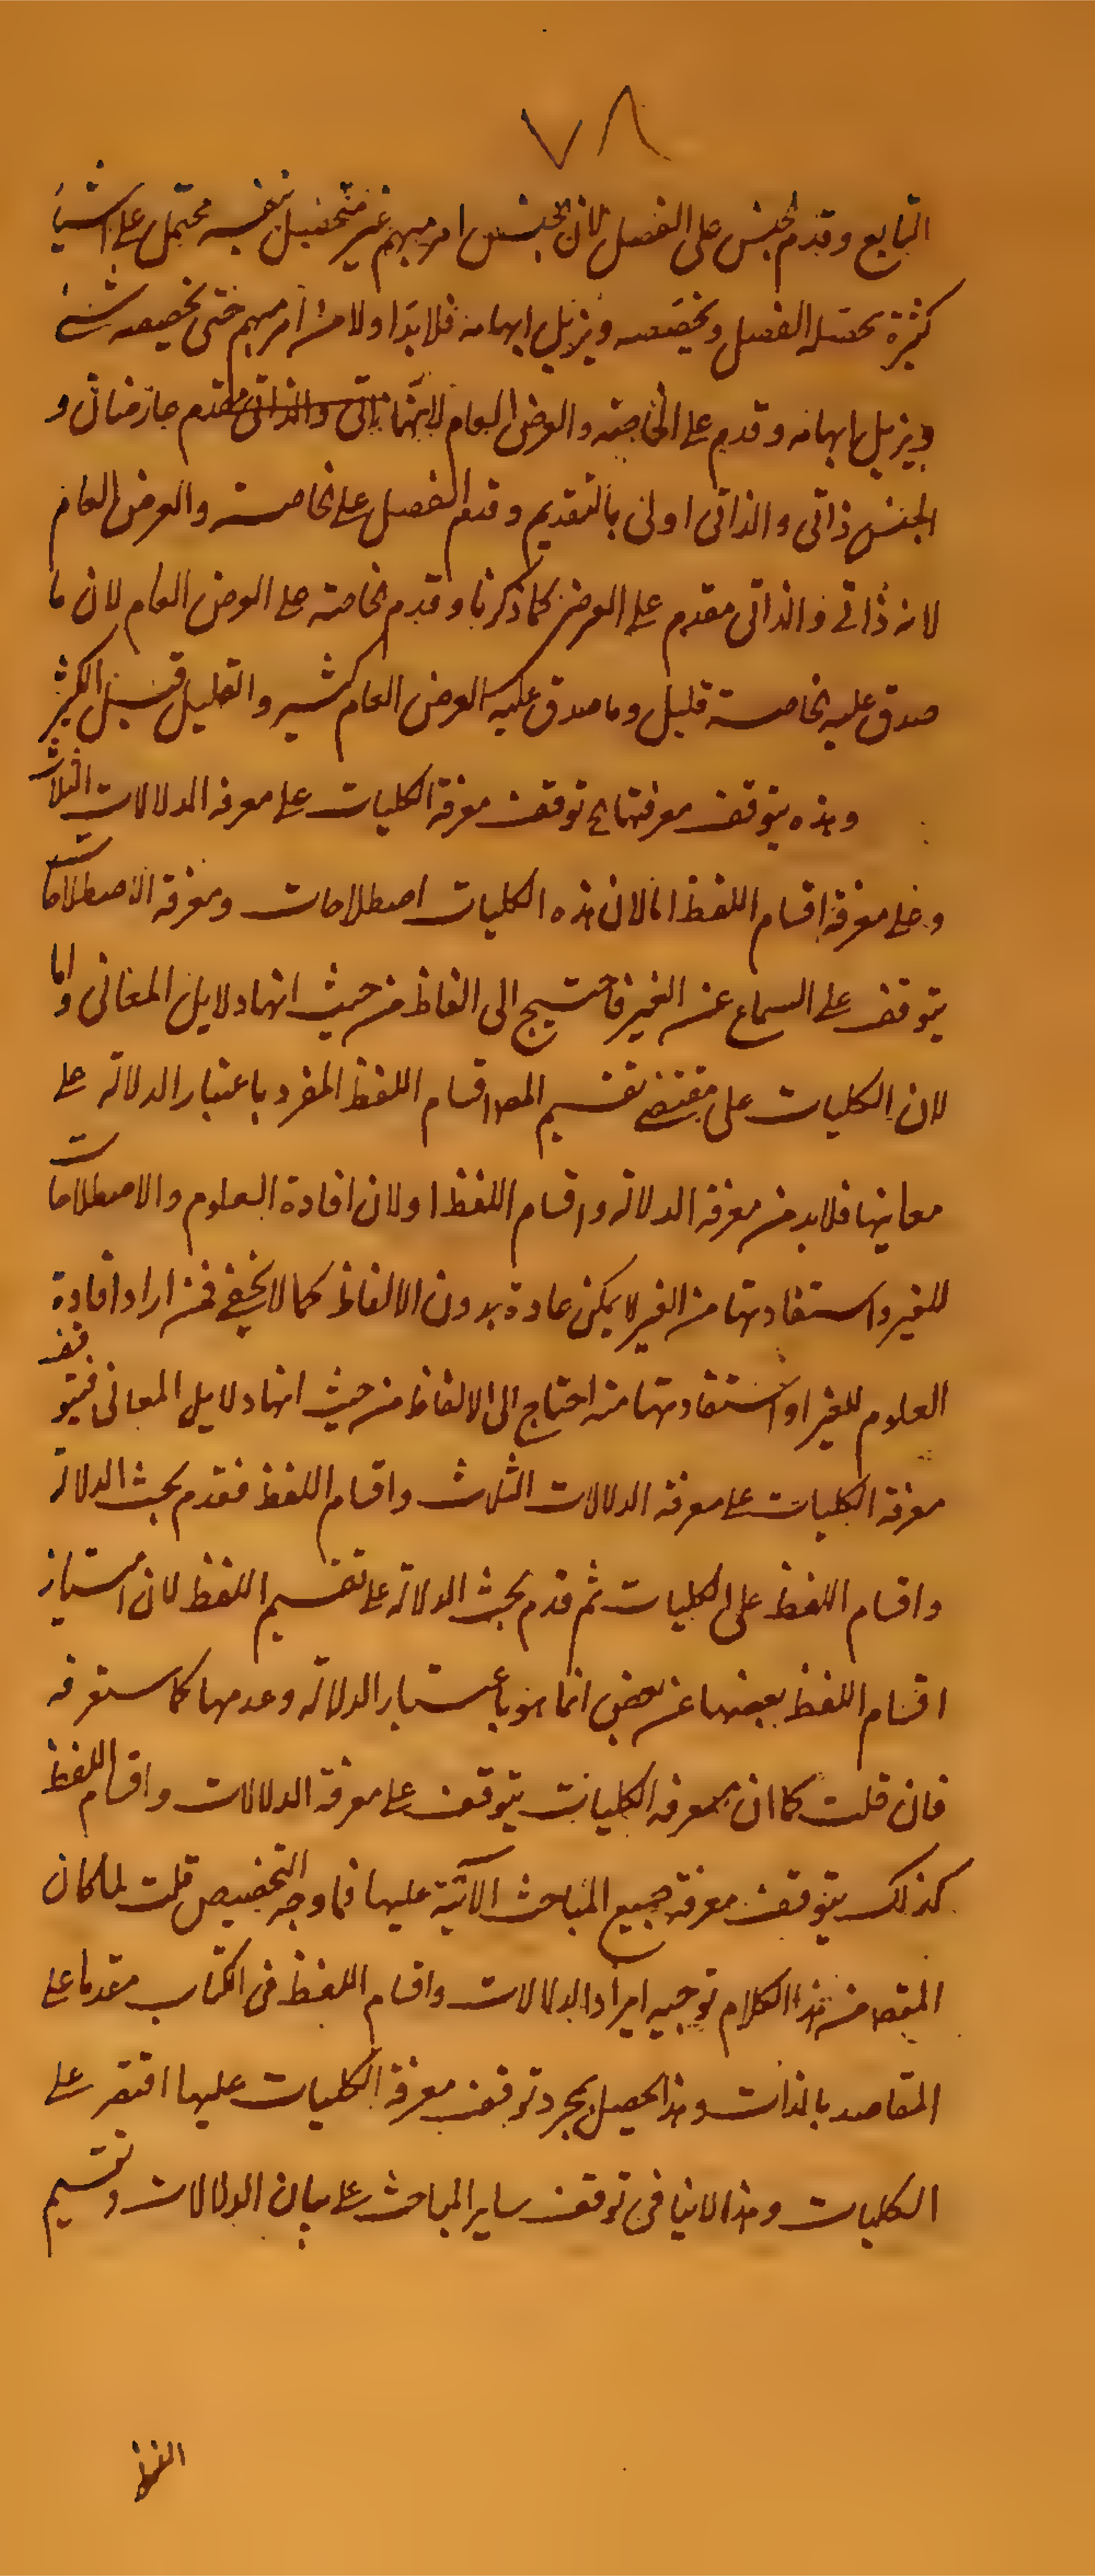 ٧٨
التابع وقدم الجنس على الفصل لان الجنس امر مبهم غير متحصل بنفسه محتمل على اشياء
كثيرة يحصله الفصل ويخصصه ويزيل ابهامه فلا بد اولا من امر مبهم حتى يخصصه شئ
ويزيل ابهامه وقدم على الخاصة والعرض العام لانهما عارضان و
الجنس ذاتى والذاتى اولى بالتقديم وقدم الفصل على الخاصة والعرض العام
لانه ذاتى والذاتى مقدم على العرض كما ذكرنا وقدم الخاصة على العرض العام لان ما
صدق عليه الخاصة قليل وما صدق عليه العرض العام كثير والقليل قبل الكثير
وهذه يتوقف معرفتها اى توقف معرفة الكليات على معرفة الدلالات الثلاث
وعلى معرفة اقسام اللفظ اما لان هذه الكليات اصطلاحات ومعرفة الاصطلاحات
يتوقف على السماع عن الغير فاحتيج الى الفاظ من حيث انها دلايل المعانى واما
لان الكليات على مقتضى تقسيم المص اقسام اللفظ المفرد باعتبار الدلالة على
معانيها فلابد من معرفة الدلالة واقسام اللفظ او لان افادة العلوم والاصطلاحات
للغير واستفادتها من الغير لا يمكن عادة بدون الالفاظ كما لا يخفى فمن اراد افادة
العلوم للغير او استفادتها منه احتاج الى الالفاظ من حيث انها دلايل المعانى فيتوقف
معرفة الكليات على معرفة الدلالات الثلاث واقسام اللفظ فقدم بحث الدلالة
واقسام اللفظ على الكليات ثم قدم بحث الدلالة على تقسيم اللفظ لان امتياز
اقسام اللفظ بعضها عن بعض انما هو باعتبار الدلالة وعدمها كما ستعرفه
فان قلت كما ان معرفة الكليات يتوقف على معرفة الدلالات واقسام اللفظ
كذلك يتوقف معرفة جميع المباحث الآتية عليها فما وجه التخصيص قلت لما كان
المقص من هذا الكلام توجيه ايراد الدلالات واقسام اللفظ فى الكتاب مقدما على
المقاصد بالذات وهذا يحصل بمجرد توقف معرفة الكليات عليها اقتصر على
الكليات وهذا لا ينافى توقف ساير المباحث على بيان الدلالات وتقسيم
اللفظ